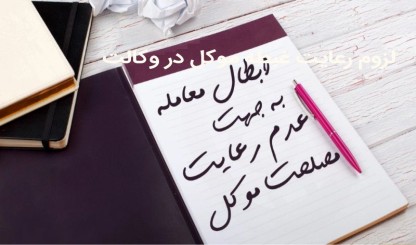 لزوم رعایت غبطه موکل در وکالت
ابطال معامله
به جهت
عدم رعایت
مصلحت موکل